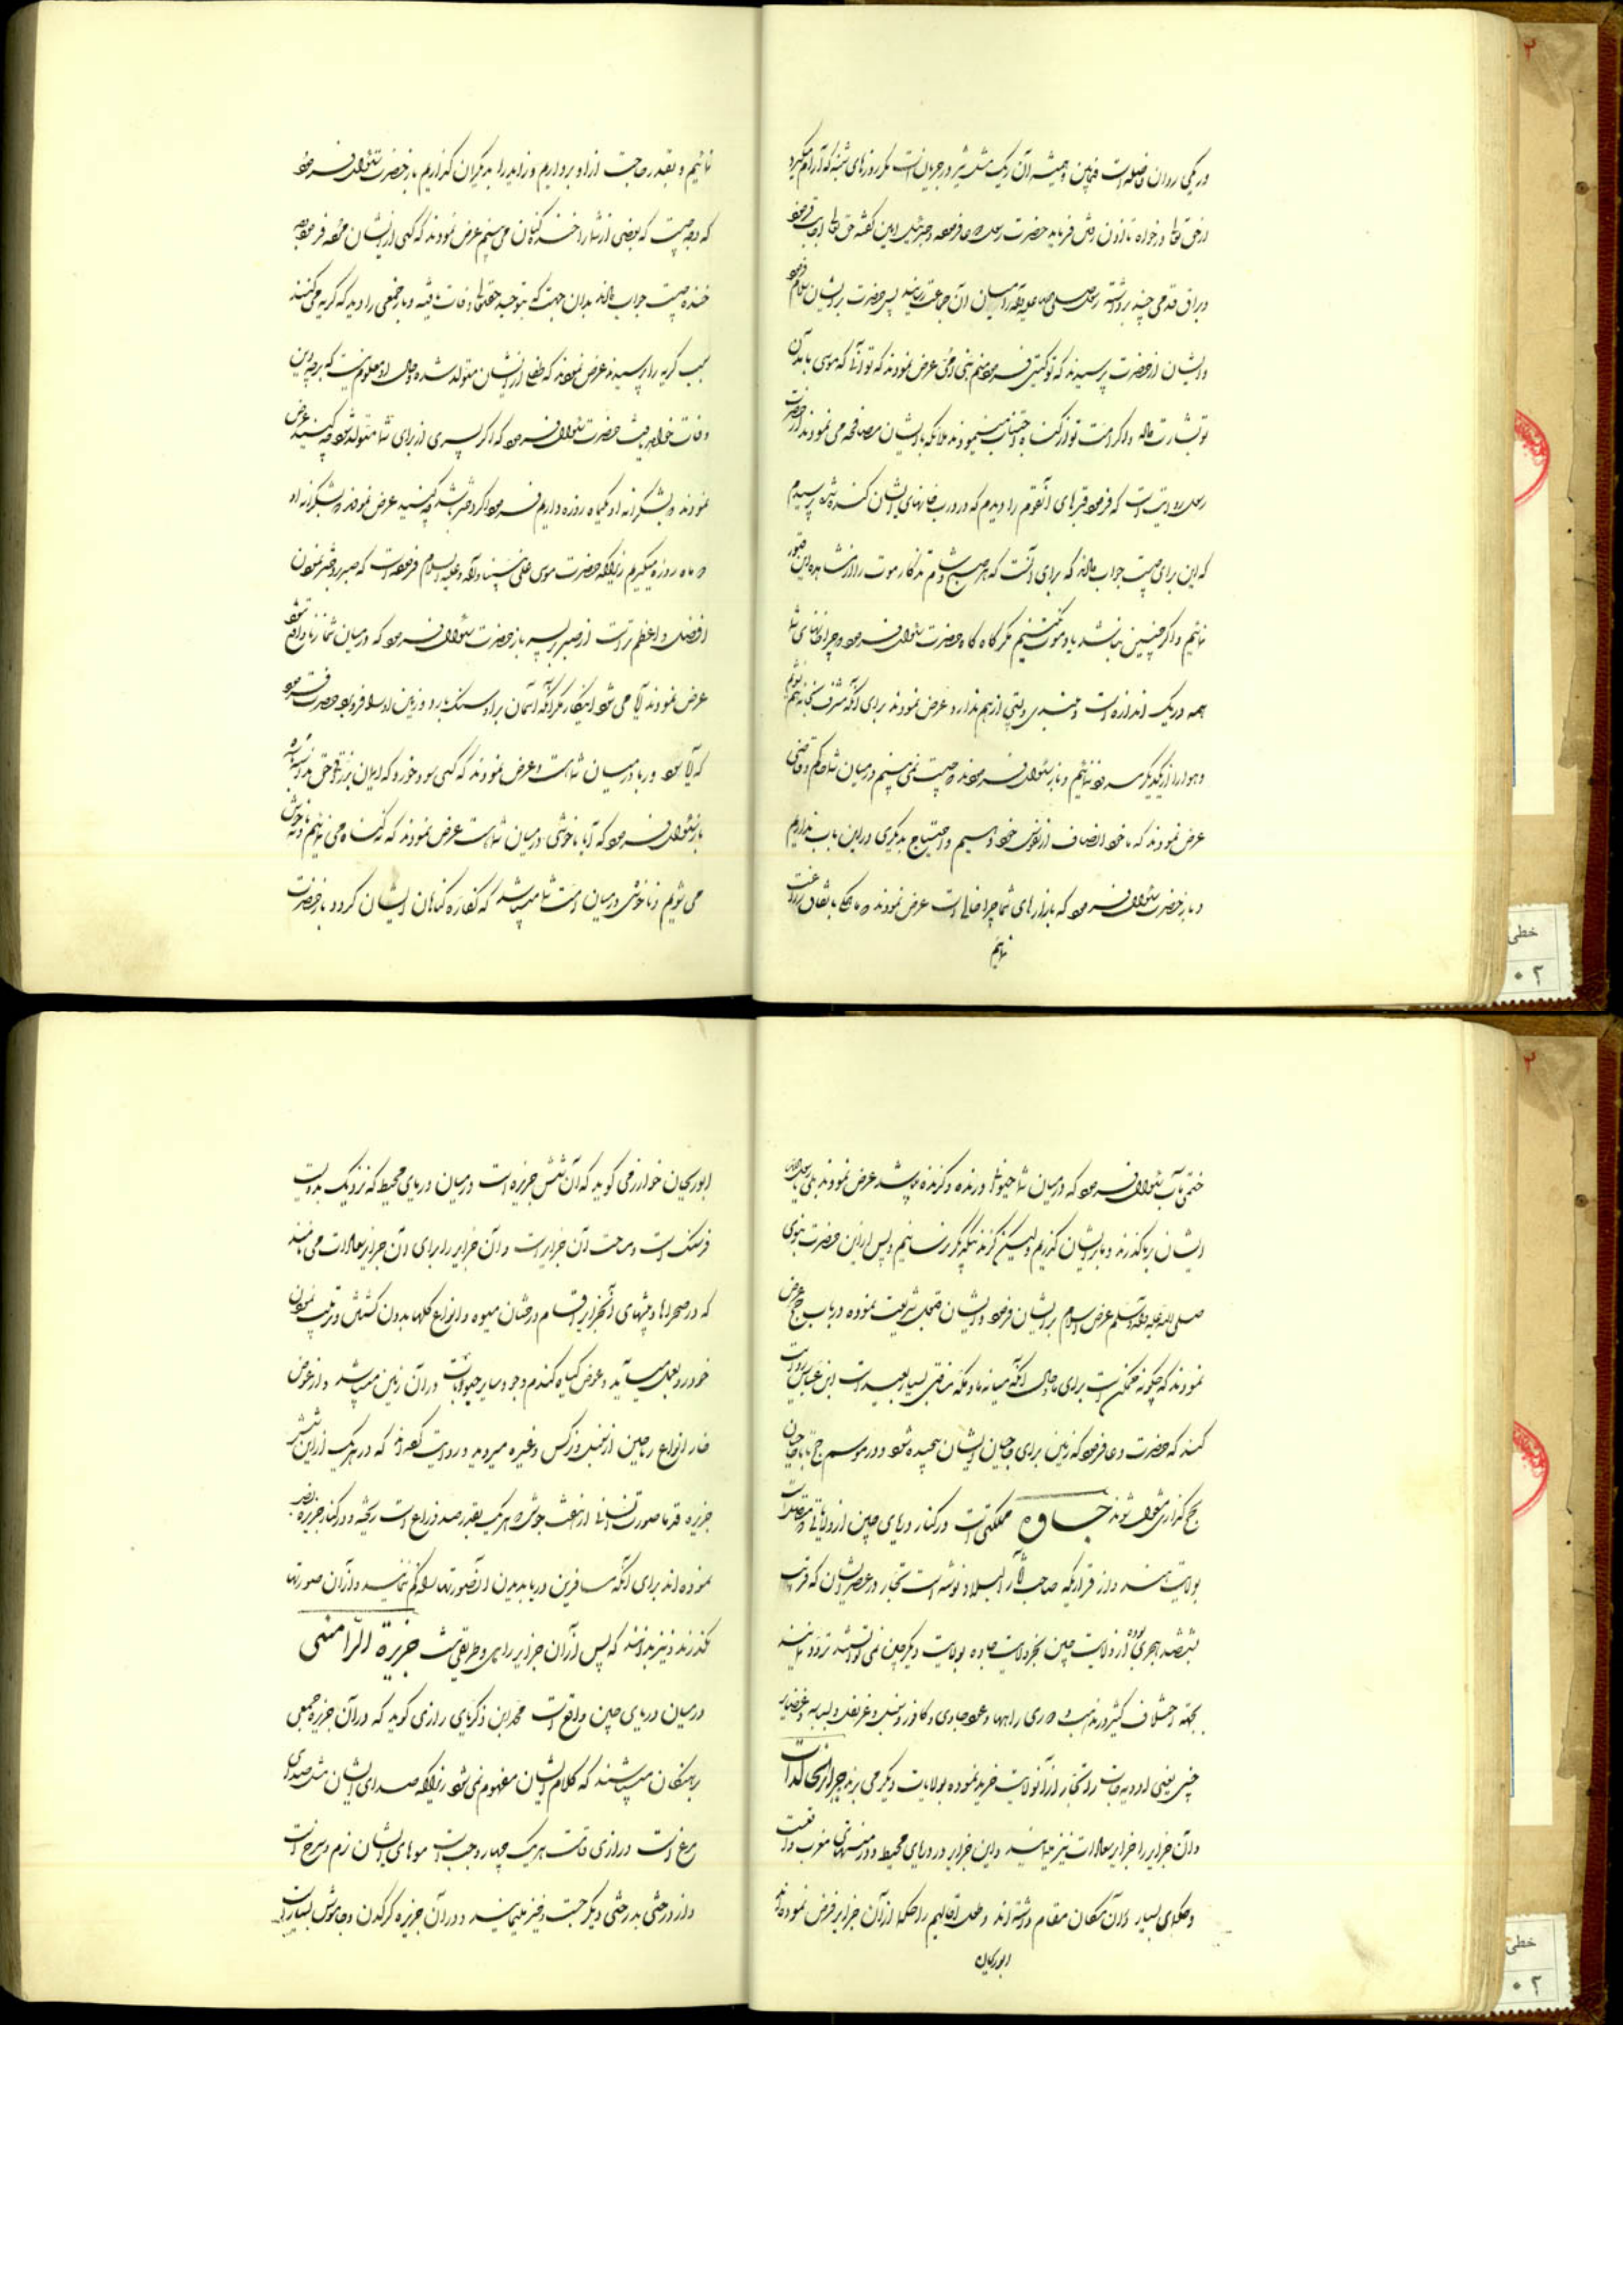 در یکی روان فاصله است فیمابین و همیشه آن ریگ مثل شیر در جریان است مگر روزهای شنبه که آرام میگیرد
از حق تعالی درخواه تا اذن رفتن فرماید حضرت رسول دعا فرموده و جبرئیل امین گفته حق تعالی اجابت فرموده
و براق قدمی چند برداشته رسول صلی الله علیه و آله را میان آن جماعت رسانید پس حضرت بر ایشان سلام فرموده
و ایشان از حضرت پرسیدند که تو کیستی فرمود منم نبی امی عرض نمودند که تو آنی که موسی بآمدن
تو بشارت داده و اگر امت تو از گناه اجتناب مینمودند ملائکه با ایشان مصافحه می نمودند از حضرت
رسول روایت است که فرمود قبرهای آنقوم را دیدم که در درب خانهای ایشان کنده شده پرسیدم
که این برای چیست جواب دادند که برای آنست که هر صبح و شام تذکار موت را از مشاهده این قبور
نمائیم و اگر چنین نباشد یاد موت نکنیم مگر گاه گاه حضرت سئوال فرمود چرا خانهای شما
همه در یک اندازه است و بلندی و پستی از هم ندارد عرض نمودند برای آنکه مشرف بخانه هم نشویم
و هوا را از یکدیگر سد ننمائیم و باز سئوال فرمودند چیست نمی بینم در میان شما حاکم و قاضی
عرض نمودند که ما خود انصاف از نفوس خود دهیم و احتیاج بدیگری در این باب نداریم
و باز حضرت سئوال فرمود که بازارهای شما چرا خالی است عرض نمودند ما همگی باتفاق زراعت
نمائیم
نمائیم و بقدر حاجت از او برداریم و زاید را بدیگران گذاریم باز حضرت سئوال فرمود
که وجه چیست که بعضی از شما را خنده کنان می بینم عرض نمودند که کسی از ایشان مرده فرمود
خنده چیست جواب دادند بدان جهت که بتوحید حقتعالی وفات یافته و باز جمعی را دید که گریه می کنند
سبب گریه را پرسیدند عرض نمودند که طفلی از ایشان متولد شده و حال او معلوم نیست که بر چه دین
وفات خواهد یافت حضرت سئوال فرمود که اگر پسری از برای شما متولد شود چه کنید عرض
نمودند بشکرانه او یکماه روزه داریم فرمود اگر دختر باشد چه کنید عرض نمودند بشکرانه او
دو ماه روزه میگیریم زیرا که حضرت موسی علی نبینا و آله و علیه السلام فرموده است که صبر بر دختر نمودن
افضل و اعظم تر است از صبر بر پسر باز حضرت سئوال فرمود که در میان شما زنا واقع شود
عرض نمودند آیا می شود اینکار مگر آنکه آسمان بر او سنگ بارد و زمین او را فرو برد حضرت فرمود
که آیا سود و ربا در میان شما است عرض نمودند که کسی سود خورد که ایمان برزق حق نداشته
باز سئوال فرمود که آیا ناخوشی در میان شما است عرض نمودند که نه گناه می نمائیم و نه ناخوش
می شویم و ناخوشی در میان امت شما میباشد که کفاره گناهان ایشان گردد باز حضرت
ختمی مآب سئوال فرمود که در میان شما حیوانات درنده و گزنده میباشد عرض نمودند بلی یا رسول الله
ایشان بر ما گذرند و ما بر ایشان گذریم ولیکن گزند بیکدیگر نرسانیم و پس از این حضرت نبوی
صلی الله علیه و آله و سلم عرض اسلام بر ایشان فرمود و ایشان قبول شریعت نموده در باب حج عرض
نمودند که چگونه ممکن است برای ما و حال آنکه میانه ما و مکه مسافتی بسیار بعید است ابن عباس روایت
کند که حضرت دعا فرمود که زمین برای حاجیان ایشان پیچیده شود و در موسم حج با حاجیان
بحج گذاری مشغول شوند جاوه مملکتی است در کنار دریای چین از ولایاتی که متصل است
بولایت هند و از قراریکه صاحب آثار البلاد نوشته است تجار در عصر ایشان که قریب
بششصد هجری بوده از ولایت چین بجز ولایت جاوه بولایت دیگر چین نمی توانسته تردد نمایند
بجهة اختلاف کثیر در مذهب و دوری راهها و عود جاوی و کافور و سنبل و قرنفل و بسباسه و غضایر
چینی یعنی ادویه جات را تجار از آنولایت خرید نموده بولایات دیگر می برند جزایر خالدات
و آن جزایر را جزایر سعادات نیز نامند و این جزایر در دریای محیط و در منتهای مغرب واقعست
و حکمای بسیار در آن مکان مقام داشته اند و طول اقالیم را حکما از آن جزایر فرض نموده اند
ابوریحان
ابوریحان خوارزمی گوید که آن شش جزیره است در میان دریای محیط که نزدیک بدویست
فرسنگ است مساحت آن جزایر است و آن جزایر را برای آن جزایر سعادات می نامند
که در صحراها و بیشهای آنجزایر اقسام درختان میوه و انواع گلها بدون کشتن و تربیت نمودن
خودرو بعمل میآید و عوض گیاه گندم و جو و سایر حبوبات در آن زمین میباشد و از عوض
خار انواع ریاحین از سنبل و نرگس و غیره میروید و روایت کرده اند که در هر یک از این شش
جزیره قدما صورت انسانی از هفت جوش هر یک بقدر صد ذراع است ریخته و در کنار جزیره نصب
نموده اند برای آنکه مسافرین دریا بدیدن آنصورتها راه گم ننمایند و از آن صورتها
نگذرند و نیز بدانند که پس از آن جزایر راهی و طریقی نیست جزیرة الرامنی
در میان دریای چین واقع است محمد ابن زکریای رازی گوید که در آن جزیره جمعی
برهنگان میباشند که کلام ایشان مفهوم نمی شود زیرا که صدای ایشان مثل صدای
مرغ است درازی قامت هر یک چهار وجب است موهای ایشان نرم و سرخ است
و از درختی بدرختی دیگر جست و خیز مینمایند و در آن جزیره کرگدن و جاموش بسیار است
خطی
۰۲
خطی
۰۲